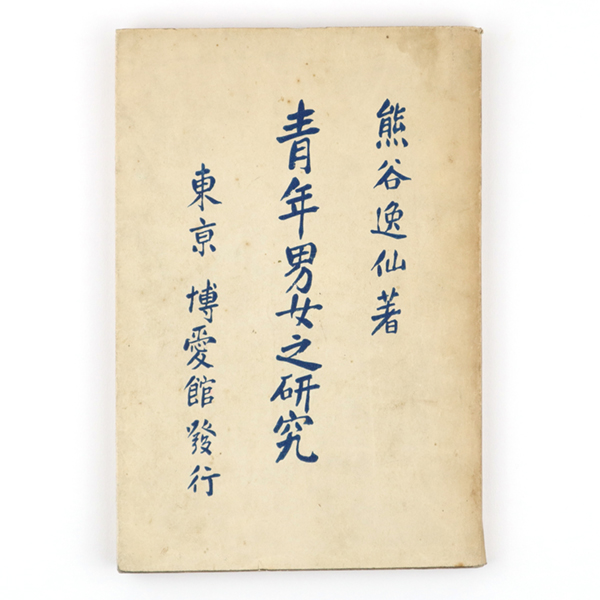 熊谷逸仙著
青年男女之硏究
東京 博愛館發行